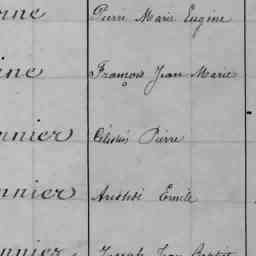 Pierre Marie Eugène
François Jean Marie
Célestin Pierre
nnier Aristide Emile
nnier Joseph Jean Baptist